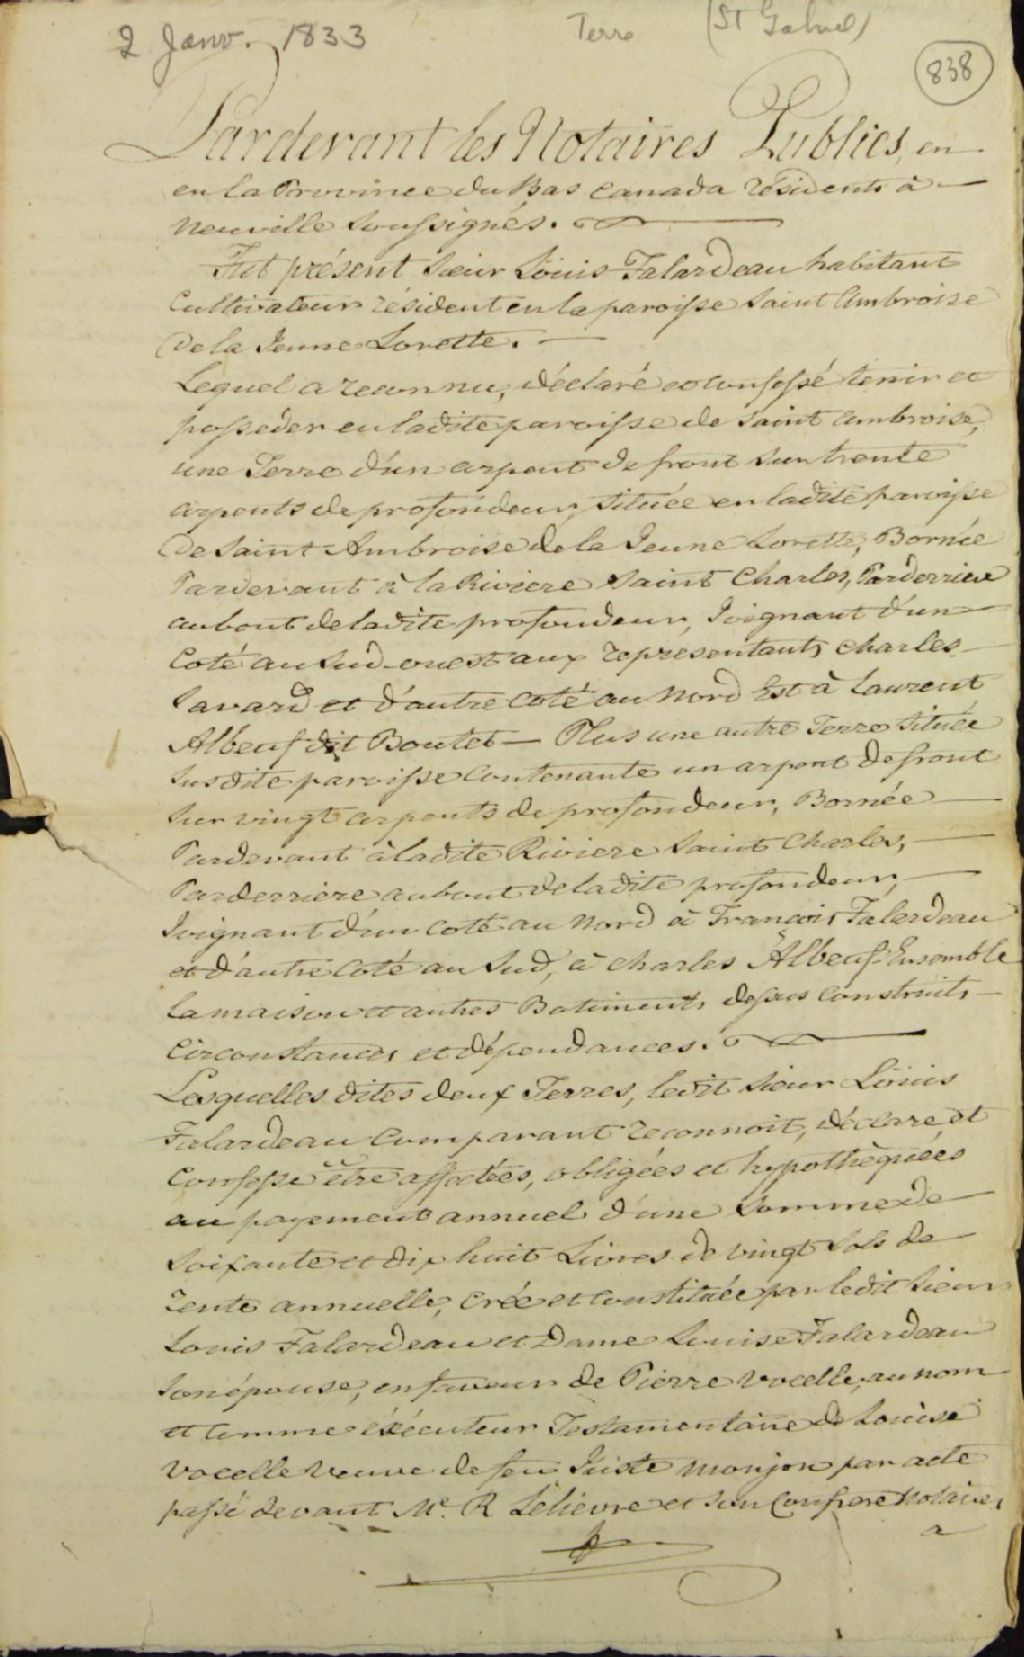 2 Janv. 1833 Terre (St Gabriel)
838
Pardevant les Notaires Publics, en
en la Province du Bas Canada résidents à
Neuville soussignés.
Fut présent Sieur Louis Falardeau habitant
Cultivateur résident en la paroisse Saint Ambroise
De la Jeune Lorette.
Lequel a reconnu, déclaré et confessé tenir et
posseder en ladite paroisse de Saint Ambroise,
une Terre d'un arpent de front sur trente
arpents de profondeur, située en ladite paroisse
De Saint Ambroise de la Jeune Lorette, Bornée
Pardevant à la Riviere Saint Charles, Parderriere
au bout de ladite profondeur, Joignant d'un
Coté au Sud-ouest aux representants Charles
Savard et d'autre Coté au Nord Est à Laurent
Albeuf dit Boutet — Plus une autre Terre située
susdite paroisse Contenante un arpent de front
sur vingt arpents de profondeur, Bornée
Pardevant à ladite Riviere Saint Charles,
Parderriere au bout de ladite profondeur,
Joignant d'un coté au Nord à François Falardeau
et d'autre Coté au Sud, à Charles Albeuf Ensemble
la maison et autres Batiments dessus Construits
Circonstances et dépendances.
Lesquelles dites deux Terres, ledit Sieur Louis
Falardeau Comparant reconnoit, déclare, et
Confesse être affectées, obligées et hypothèquées
au payement annuel d'une somme de
soixante et dix huit Livres de vingt sols de
rente annuelle, créé et constituée par ledit Sieur
Louis Falardeau et Dame Louise Falardeau
son épouse, en faveur de Pierre Vocelle, au nom
et comme éxécuteur Testamentaire de Louise
Vocelle veuve de feu Juste Monjon par acte
passé devant Me. R Lelievre et son Confrere Notaires
a